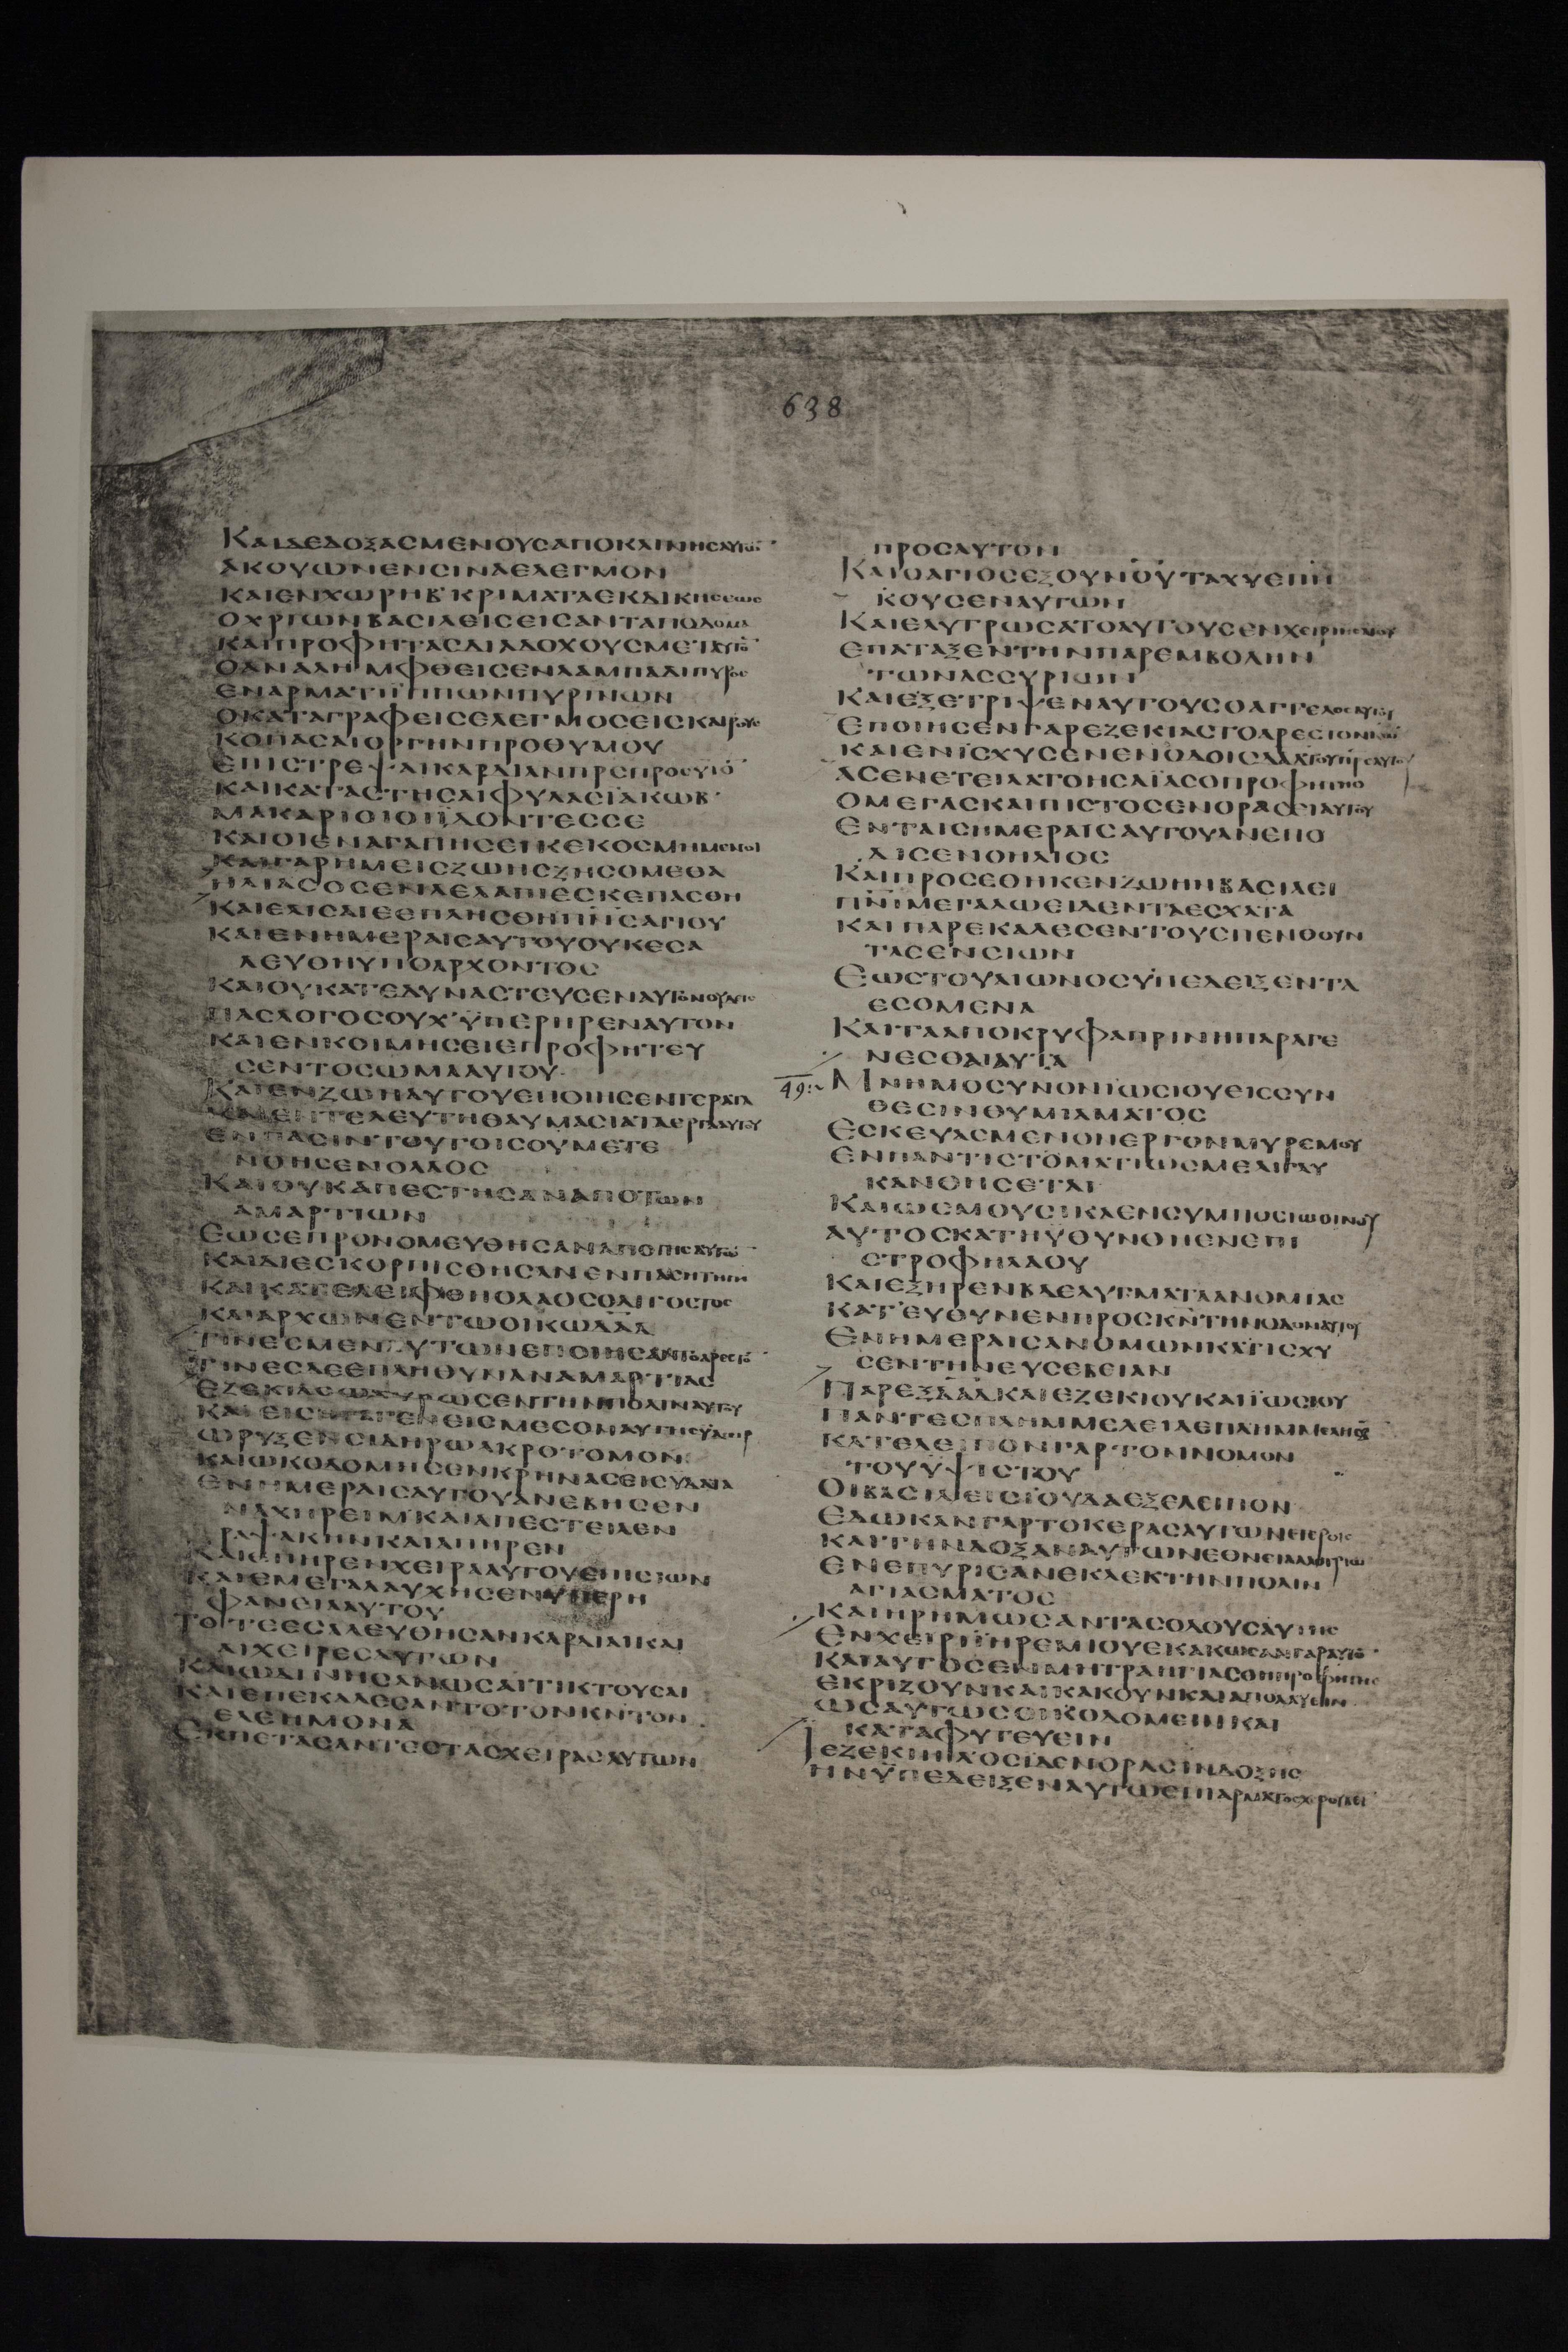 638
ΚΑΙΔΕΔΟΞΑΣΜΕΝΟΥΣΑΠΟΚΛΙΝΗΣΑΥΤΩ̅
ΑΚΟΥΩΝΕΝΣΙΝΑΕΛΕΓΜΟΝ
ΚΑΙΕΝΧΩΡΗΒ ̓ΚΡΙΜΑΤΑΕΚΔΙΚΗΣΕΩΣ
ΟΧΡΙΩΝΒΑΣΙΛΕΙΣΕΙΣΑΝΤΑΠΟΔΟΜΑ
ΚΑΙΠΡΟΦΗΤΑΣΔΙΑΔΟΧΟΥΣΜΕΤΑΥΤΟ̅
ΟΑΝΑΛΗΜΦΘΕΙΣΕΝΛΑΜΠΑΔΙΠΥΡΟΣ
ΕΝΑΡΜΑΤΙΪΠΠΩΝΠΥΡΙΝΩΝ
ΟΚΑΤΑΓΡΑΦΕΙΣΕΛΕΓΜΟΣΕΙΣΚΑΙΡΟΥΣ
ΚΟΠΑΣΑΙΟΡΓΗΝΠΡΟΘΥΜΟΥ
ΕΠΙΣΤΡΕΨΑΙΚΑΡΔΙΑΝΠΡΣΠΡΟΣΥΙΟ̅
ΚΑΙΚΑΤΑΣΤΗΣΑΙΦΥΛΑΣΪΑΚΩΒ ̓
ΜΑΚΑΡΙΟΙΟΙΪΔΟΝΤΕΣΣΕ
ΚΑΙΟΙΕΝΑΓΑΠΗΣΕΙΚΕΚΟΣΜΗΜΕΝΟΙ
ΚΑΙΓΑΡΗΜΕΙΣΖΩΗΖΗΣΟΜΕΘΑ
ΗΛΙΑΣΟΣΕΝΛΕΛΑΠΙΕΣΚΕΠΑΣΘΗ
ΚΑΙΕΛΙΣΑΙΕΕΠΛΗΣΘΗΠΝ̅ΣΑΓΙΟΥ
ΚΑΙΕΝΗΜΕΡΑΙΣΑΥΤΟΥΟΥΚΕΣΑ
ΛΕΥΘΗΥΠΟΑΡΧΟΝΤΟΣ
ΚΑΙΟΥΚΑΤΕΔΥΝΑΣΤΕΥΣΕΝΑΥΤΟΝΟΥΔΙΣ
ΠΑΣΛΟΓΟΣΟΥΧ ̓ΫΠΕΡΗΡΕΝΑΥΤΟΝ
ΚΑΙΕΝΚΟΙΜΗΣΕΙΕΠΡΟΦΗΤΕΥ
ΣΕΝΤΟΣΩΜΑΑΥΤΟΥ
ΚΑΙΕΝΖΩΗΑΥΤΟΥΕΠΟΙΗΣΕΝΤΕΡΑΤΑ
ΚΑΙΕΝΤΕΛΕΥΤΗΘΑΥΜΑΣΙΑΤΑΕΡΓΑΑΥΤΟΥ
ΕΝΠΑΣΙΝΤΟΥΤΟΙΣΟΥΜΕΤΕ
ΝΟΗΣΕΝΟΛΑΟΣ
ΚΑΙΟΥΚΑΠΕΣΤΗΣΑΝΑΠΟΤΩΝ
ΑΜΑΡΤΙΩΝ
ΕΩΣΕΠΡΟΝΟΜΕΥΘΗΣΑΝΑΠΟΓΗΣΑΥΤΩ̅
ΚΑΙΔΙΕΣΚΟΡΠΙΣΘΗΣΑΝΕΝΠΑΣΗΤΗΓΗ
ΚΑΙΚΑΤΕΛΕΙΦΘΗΟΛΑΟΣΟΛΙΓΟΣΤΟΣ
ΚΑΙΑΡΧΩΝΕΝΤΩΟΙΚΩΔΑΔ
ΤΙΝΕΣΜΕΝΑΥΤΩΝΕΠΟΙΗΣΑΝΤΟΑΡΕΣΤΟ̅
ΤΙΝΕΣΔΕΕΠΛΗΘΥΝΑΝΑΜΑΡΤΙΑΣ
ΕΖΕΚΙΑΣΩΧΥΡΩΣΕΝΤΗΝΠΟΛΙΝΑΥΤΟΥ
ΩΡΥΞΕΝΣΙΔΗΡΩΑΚΡΟΤΟΜΟΝ
ΚΑΙΩΚΟΔΟΜΗΣΕΝΚΡΗΝΑΣΕΙΣΥΔΑΤΑ
ΕΝΗΜΕΡΑΙΣΑΥΤΟΥΑΝΕΒΗΣΕΝ
ΝΑΧΗΡΕΙΜ ̓ΚΑΙΑΠΕΣΤΕΙΛΕΝ
ΡΑΨΑΚΗΝΚΑΙΑΠΗΡΕΝ
ΚΑΙΕΠΗΡΕΝΧΕΙΡΑΑΥΤΟΥΕΠΙΣΙΩΝ
ΚΑΙΕΜΕΓΑΛΑΥΧΗΣΕΝΥΠΕΡΗ
ΦΑΝΕΙΑΑΥΤΟΥ
ΤΟΤΕΕΣΑΛΕΥΘΗΣΑΝΚΑΡΔΙΑΙΚΑΙ
ΑΙΧΕΙΡΕΣΑΥΤΩΝ
ΚΑΙΩΔΙΝΗΣΑΝΩΣΑΙΤΙΚΤΟΥΣΑΙ
ΚΑΙΕΠΕΚΑΛΕΣΑΝΤΟΤΟΝΚΝΤΟΝ
ΕΛΕΗΜΟΝΑ
ΕΚΠΕΤΑΣΑΝΤΕΣΤΑΣΧΕΙΡΑΣΑΥΤΩΝ
ΠΡΟΣΑΥΤΟΝ
ΚΑΙΟΑΓΙΟΣΕΞΟΥΝΟΥΤΑΧΥΕΠΗ
ΚΟΥΣΕΝΑΥΤΩΝ
ΚΑΙΕΛΥΤΡΩΣΑΤΟΑΥΤΟΥΣΕΝΧΕΙΡΙΗΣΑΙΟΥ
ΕΠΑΤΑΞΕΝΤΗΝΠΑΡΕΜΒΟΛΗΝ
ΤΩΝΑΣΣΥΡΙΩΝ
ΚΑΙΕΞΕΤΡΙΨΕΝΑΥΤΟΥΣΟΑΓΓΕΛΟΣΑΥΤΟΥ
ΕΠΟΙΗΣΕΝΓΑΡΕΖΕΚΙΑΣΤΟΑΡΕΣΤΟΝΚΩ
ΑΣΕΝΕΤΕΙΛΑΤΟΗΣΑΪΑΣΟΠΡΟΦΗΤΗΣ
ΟΜΕΓΑΣΚΑΙΠΙΣΤΟΣΕΝΟΡΑΣΕΙΑΥΤΟΥ
ΕΝΤΑΙΣΗΜΕΡΑΙΣΑΥΤΟΥΑΝΕΠΟ
ΔΙΣΕΝΟΗΛΙΟΣ
ΚΑΙΠΡΟΣΕΘΗΚΕΝΖΩΗΝΒΑΣΙΛΕΙ
ΠΝ̅ΙΜΕΓΑΛΩΕΙΔΕΝΤΑΕΣΧΑΤΑ
ΚΑΙΠΑΡΕΚΑΛΕΣΕΝΤΟΥΣΠΕΝΘΟΥΝ
ΤΑΣΕΝΣΙΩΝ
ΕΩΣΤΟΥΑΙΩΝΟΣΥΠΕΔΕΙΞΕΝΤΑ
ΕΣΟΜΕΝΑ
ΚΑΙΤΑΑΠΟΚΡΥΦΑΠΡΙΝΗΠΑΡΑΓΕ
ΝΕΣΘΑΙΑΥΤΑ
49:~ ΜΝΗΜΟΣΥΝΟΝΪΩΣΙΟΥΕΙΣΣΥΝ
ΘΕΣΙΝΘΥΜΙΑΜΑΤΟΣ
ΕΣΚΕΥΑΣΜΕΝΟΝΕΡΓΟΝΜΥΡΕΜΟΥ
ΕΝΠΑΝΤΙΣΤΟΜΑΤΙΩΣΜΕΛΙΓΛΥ
ΚΑΝΘΗΣΕΤΑΙ
ΚΑΙΩΣΜΟΥΣΙΚΑΕΝΣΥΜΠΟΣΙΩΟΙΝΟΥ
ΑΥΤΟΣΚΑΤΗΥΘΥΝΘΗΕΝΕΠΙ
ΣΤΡΟΦΗΛΑΟΥ
ΚΑΙΕΞΗΡΕΝΒΔΕΛΥΓΜΑΤΑΑΝΟΜΙΑΣ
ΚΑΤΕΥΘΥΝΕΝΠΡΟΣΚΝΤΗΝΚΑΡΔΙΑΝΑΥΤΟΥ
ΕΝΗΜΕΡΑΙΣΑΝΟΜΩΝΚΑΤΙΣΧΥ
ΣΕΝΤΗΝΕΥΣΕΒΕΙΑΝ
ΠΑΡΕΞΔΑΔΚΑΙΕΖΕΚΙΟΥΚΑΙΪΩΣΙΟΥ
ΠΑΝΤΕΣΠΛΗΜΜΕΛΕΙΑΕΠΛΗΜΜΕΛΗΣΑ̅
ΚΑΤΕΛΕΙΠΟΝΓΑΡΤΟΝΝΟΜΟΝ
ΤΟΥΫΨΙΣΤΟΥ
ΟΙΒΑΣΙΛΕΙΣΙΟΥΔΑΕΞΕΛΕΙΠΟΝ
ΕΔΩΚΑΝΓΑΡΤΟΚΕΡΑΣΑΥΤΩΝΕΤΕΡΟΙΣ
ΚΑΙΤΗΝΔΟΞΑΝΑΥΤΩΝΕΘΝΕΙΑΛΛΟΤΡΙΩ
ΕΝΕΠΥΡΙΣΑΝΕΚΛΕΚΤΗΝΠΟΛΙΝ
ΑΓΙΑΣΜΑΤΟΣ
ΚΑΙΗΡΗΜΩΣΑΝΤΑΣΟΔΟΥΣΑΥΤΗΣ
ΕΝΧΕΙΡΙΪΗΡΕΜΙΟΥΕΚΑΚΩΣΑΝΓΑΡΑΥΤΟ̅
ΚΑΙΑΥΤΟΣΕΝΜΗΤΡΑΗΓΙΑΣΘΗΠΡΟΦΗΤΗΣ
ΕΚΡΙΖΟΥΝΚΑΙΚΑΚΟΥΝΚΑΙΑΠΟΛΛΥΕΙΝ
ΩΣΑΥΤΩΣΟΙΚΟΔΟΜΕΙΝΚΑΙ
ΚΑΤΑΦΥΤΕΥΕΙΝ
ΙΕΖΕΚΙΗΛΟΣΙΔΕΝΟΡΑΣΙΝΔΟΞΗΣ
ΗΝΫΠΕΔΕΙΞΕΝΑΥΤΩΕΠΙΑΡΜΑΤΟΣΧΕΡΟΥΒΕΙ̅